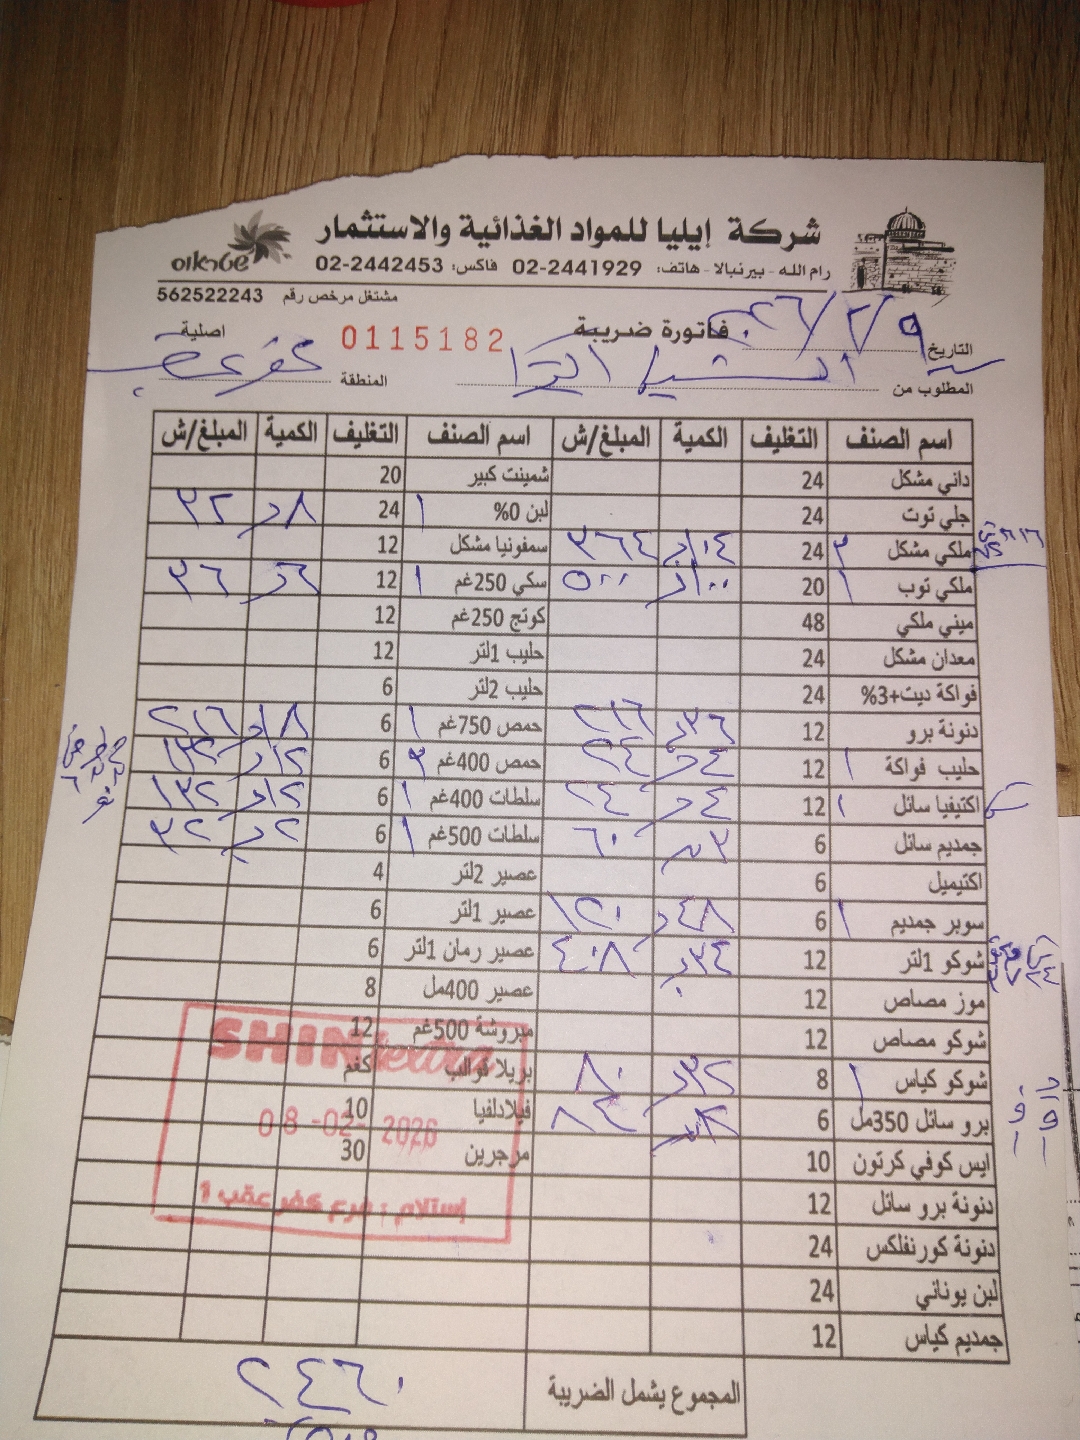 شركة إيليا للمواد الغذائية والاستثمار
رام الله - بيرنبالا - هاتف: 02-2441929 فاكس: 02-2442453
مشتغل مرخص رقم 562522243
فاتورة ضريبة 0115182 اصلية
التاريخ
المطلوب من المنطقة كفر عقب
اسم الصنف التغليف الكمية المبلغ/ش اسم الصنف التغليف الكمية المبلغ/ش
داني مشكل 24 شمينت كبير 20
جلي توت 24 لبن 0% ١ 24 ٨ ٣٢
ملكي مشكل ٣ 24 ١٠٤ ٣٦٤ سمفونيا مشكل 12
ملكي توب ١ 20 ١٠٠ ٥٠٠ سكي 250غم ١ 12 ٦ ٣٦
ميني ملكي 48 كوتج 250غم 12
معدان مشكل 24 حليب 1لتر 12
فواكة ديت+3% 24 حليب 2لتر 6
دنونة برو 12 ٣٦ ٢١٦ حمص 750غم ١ 6 ١٨ ٢١٦
حليب فواكة ١ 12 ٤ ٢٤ حمص 400غم ٣ 6 ١٢ ١٣٢
اكتيفيا سائل ١ 12 ٤ ٢٤ سلطات 400غم ١ 6 ١٢ ١٣٢
جمديم سائل 6 ٦٠ سلطات 500غم ١ 6 ٢ ٣٢
اكتيميل 6 عصير 2لتر 4
سوبر جمديم ١ 6 ٤٨ ١٢٠ عصير 1لتر 6
شوكو 1لتر 12 ٣٤ ٤٠٨ عصير رمان 1لتر 6
موز مصاص 12 عصير 400مل 8
شوكو مصاص 12 مبروشة 500غم 12
شوكو كياس ١ 8 ٣٢ ٨٠ بريلا قوالب كغم
برو سائل 350مل 6 ٨٤ فيلادلفيا 10
ايس كوفي كرتون 10 مرجرين 30
دنونة برو سائل 12
دنونة كورنفلكس 24
لبن يوناني 24
جمديم كياس 12
المجموع يشمل الضريبة ٢٤٦٠
SHINI extra
08-02-2026
إستلام : فرع كفر عقب 1